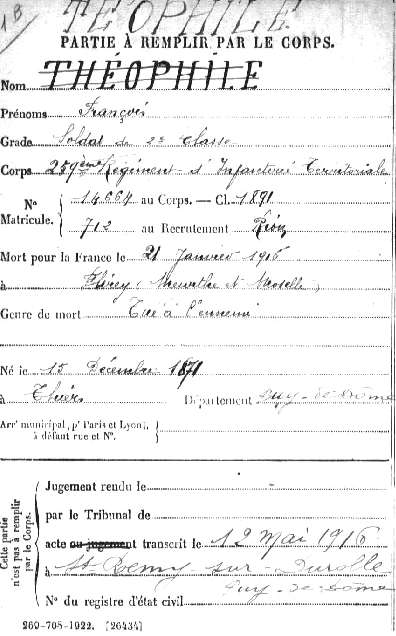 1B TÉOPHILE
PARTIE À REMPLIR PAR LE CORPS.
Nom THÉOPHILE
Prénoms François
Grade Soldat de 2e classe
Corps 259ème Régiment d'Infanterie Territoriale
N° Matricule. { 14664 au Corps. — Cl. 1891
712 au Recrutement Riom
Mort pour la France le 21 Janvier 1916
à Flirey (Meurthe et Moselle)
Genre de mort Tué à l'ennemi
Né le 15 Décembre 1871
à Thiers Département Puy-de-Dôme
Arr' municipal, p' Paris et Lyon,
à défaut rue et N°.
Cette partie n'est pas à remplir par le Corps.
Jugement rendu le
par le Tribunal de
acte ou jugement transcrit le 12 Mai 1916
à St Remy-sur-Durolle
Puy-de-Dôme
N° du registre d'état civil
260-708-1922. [26434]